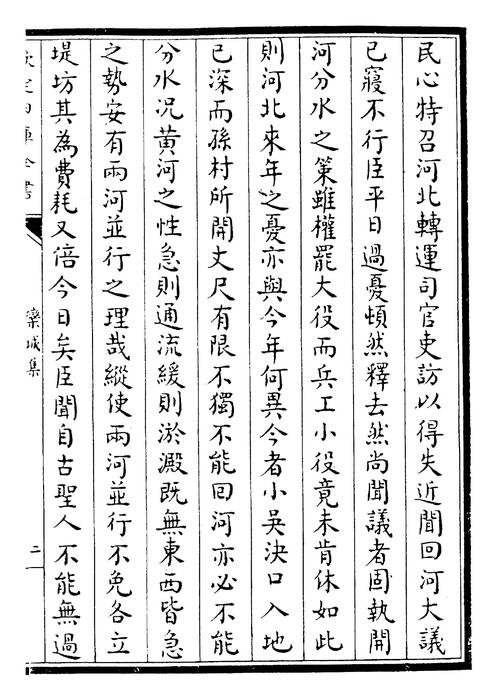 民心特召河北轉運司官吏訪以得失近聞回河大議
已寢不行臣平日過憂頓然釋去然尚聞議者固執開
河分水之策雖權罷大役而兵工小役竟未肯休如此
則河北來年之憂亦與今年何異今者小吳決口入地
已深而孫村所開丈尺有限不獨不能回河亦必不能
分水况黄河之性急則通流緩則淤澱既無東西皆急
之勢安有兩河並行之理哉縱使兩河並行不免各立
堤坊其為費耗又倍今日矣臣聞自古聖人不能無過
欽定四庫全書
欒城集
二